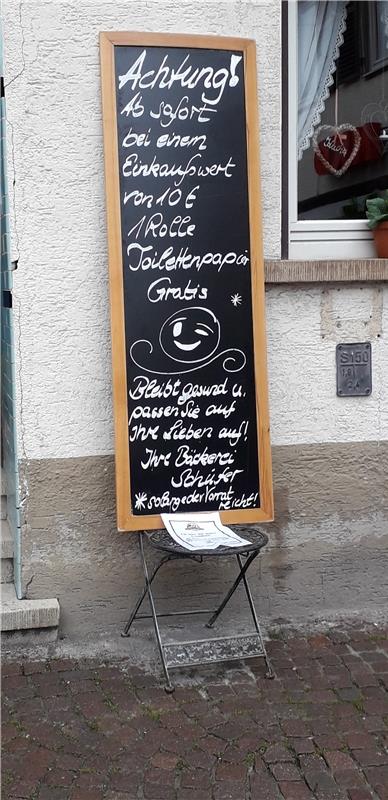 Achtung!
Ab sofort
bei einem
Einkaufswert
von 10 €
1 Rolle
Toilettenpapier
Gratis *
Bleibt gesund u.
passen Sie auf
Ihre Lieben auf!
Ihre Bäckerei
Schäfer
* solange der Vorrat
reicht!
S150